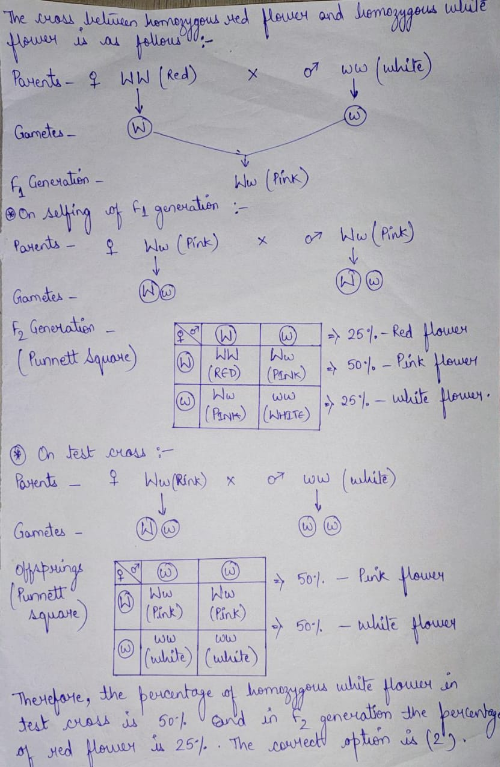 The cross between homozygous red flower and homozygous white
flower is as follows :-
Parents - ♀ WW (Red) × ♂ ww (white)
Gametes - W w
F1 Generation - Ww (Pink)
⊛ On selfing of F1 generation :-
Parents - ♀ Ww (Pink) × ♂ Ww (Pink)
Gametes - W w W w
F2 Generation -
(Punnett Square)
♀ ♂ W w
W WW (RED) Ww (PINK)
w Ww (PINK) ww (WHITE)
⇒ 25% - Red flower
⇒ 50% - Pink flower
⇒ 25% - white flower.
⊛ On test cross :-
Parents - ♀ Ww (Pink) × ♂ ww (white)
Gametes - W w w w
Offsprings
(Punnett
square)
♀ ♂ w w
W Ww (Pink) Ww (Pink)
w ww (white) ww (white)
⇒ 50% - Pink flower
⇒ 50% - white flower
Therefore, the percentage of homozygous white flower in
test cross is 50% and in F2 generation the percentage
of red flower is 25%. The correct option is (2).